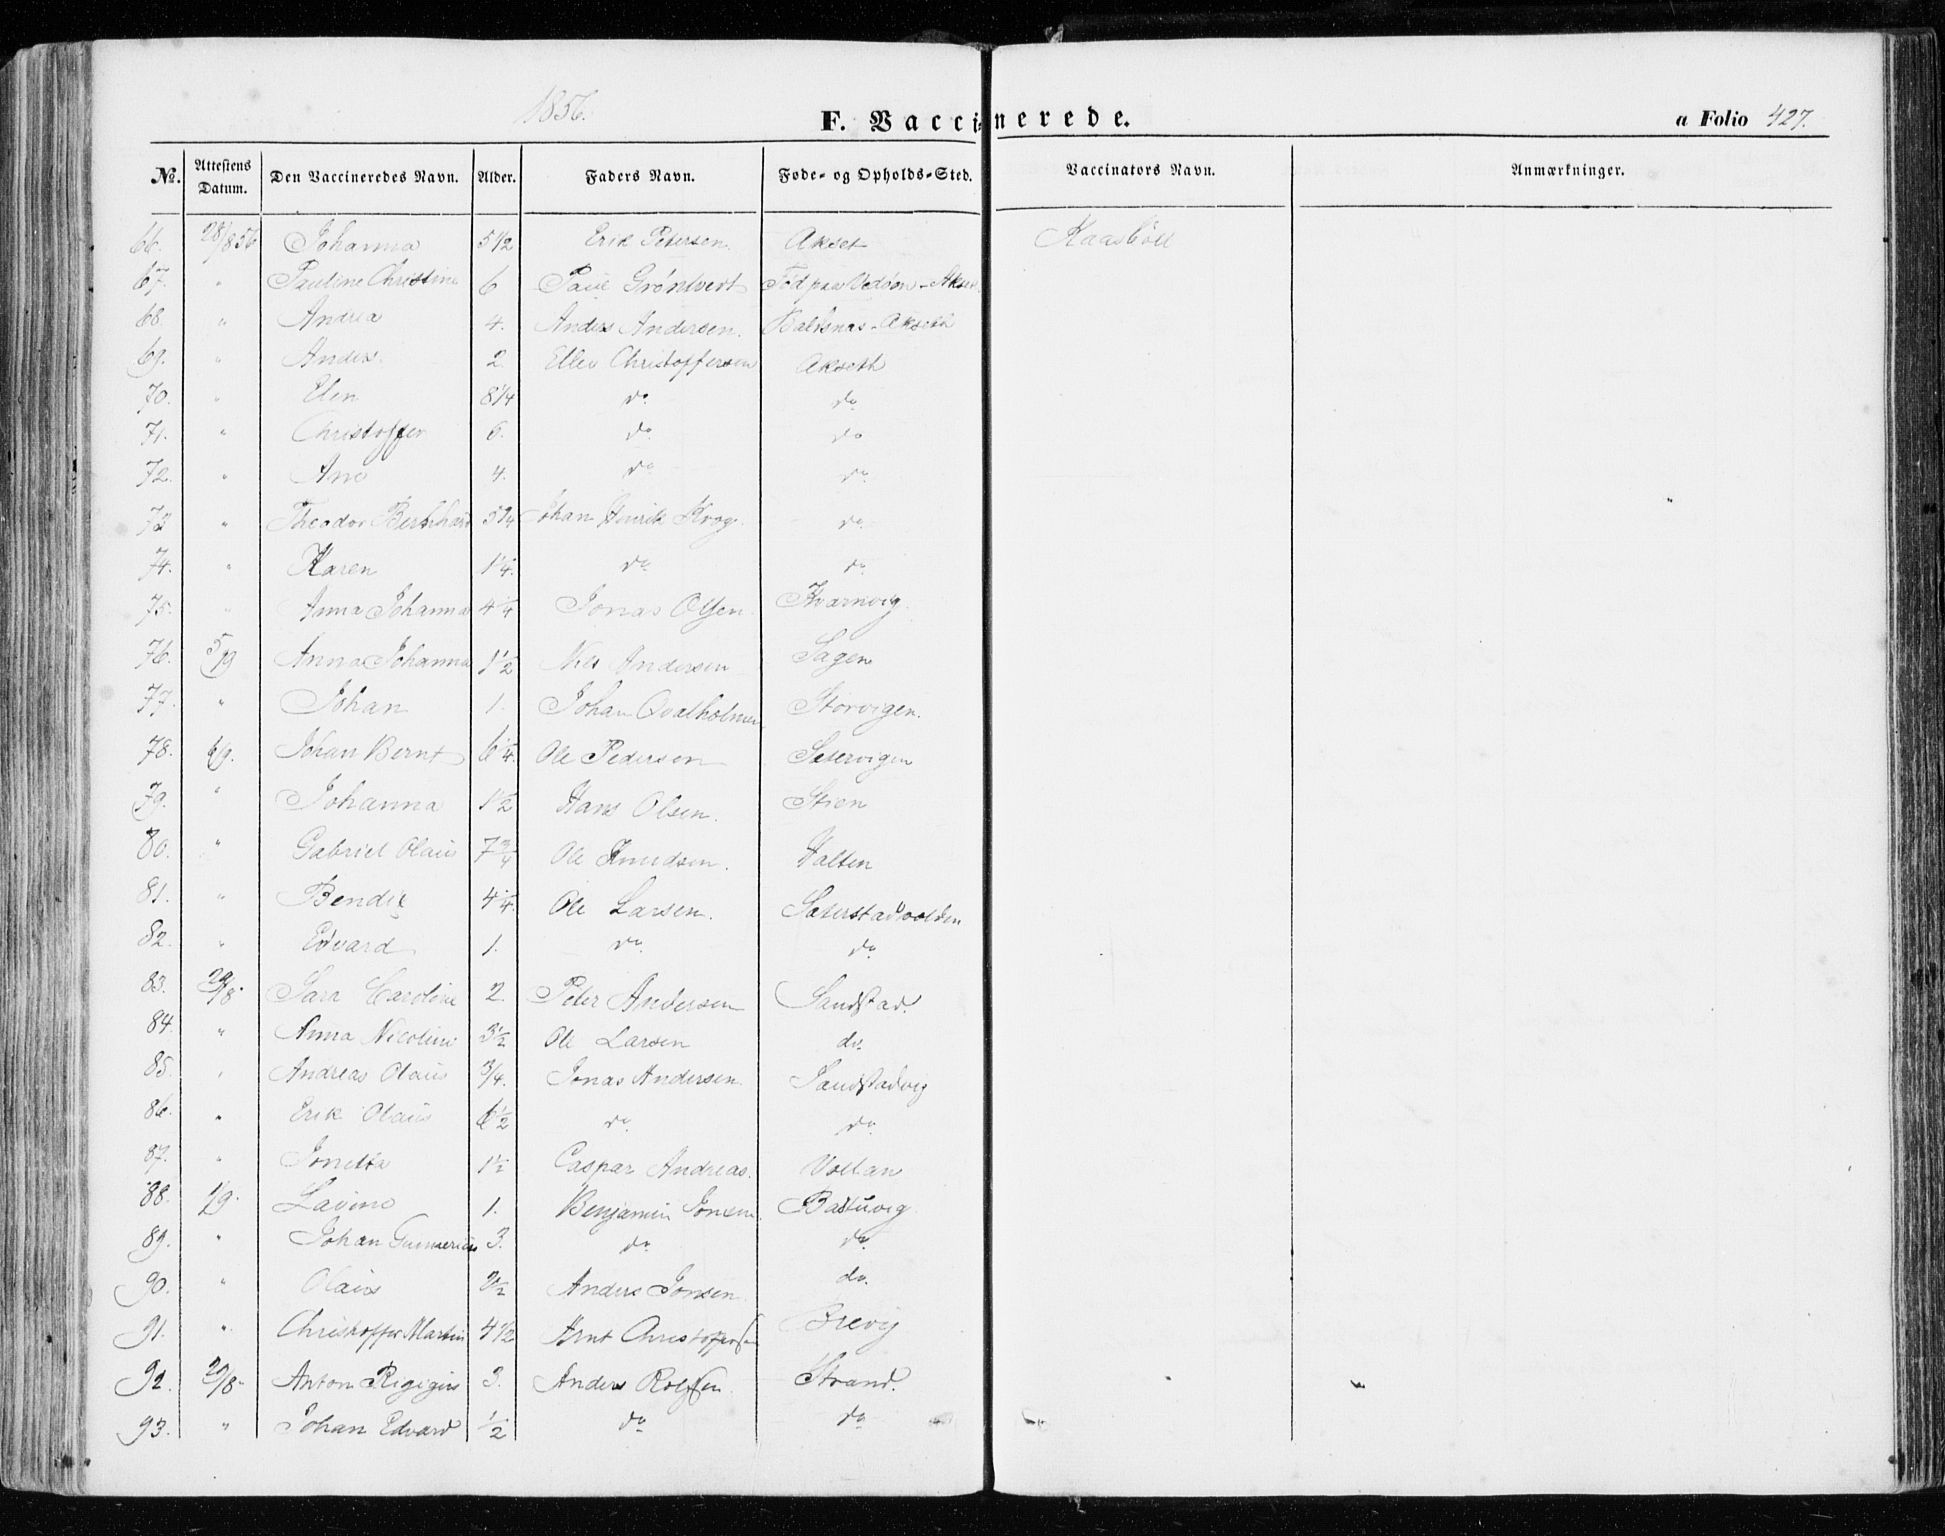 1856.
F. Vaccinerede.
a Folio 427.
No. Attestens Datum. Den Vaccineredes Navn. Alder. Faders Navn. Føde- og Opholds-Sted. Vaccinators Navn. Anmærkninger.
66. 28/8 56 Johanna 5 1/2 Erik Petersen. Akset Kaasbøll
67. " Pauline Christine 6 Paul Grøntvedt Fød paa Vedøen - Akset
68. " Andrea 4. Anders Andersen. Balsnæs - Akseth
69. " Anders. 2. Ellev Christoffersen Akseth
70. " Elen 8 1/4 do do
71. " Christoffer 6. do. do
72. " Ane 4. do do.
73 " Theodor Bernhard 5 3/4 Johan Henrik Krog. do.
74. " Karen 1 1/4. do do.
75. " Anna Johanna 4 1/4 Jonas Olsen. Kvarnvig.
76. 5/9 Anna Johanna 1 1/2 Nils Andersen Sagen
77. " Johan 1. Johan Qvalholmen Storvigen.
78. 6/9. Johan Bernt 6 1/4. Ole Pedersen Setervigen
79. " Johanna 1 1/2 Hans Olsen. Stien
80. " Gabriel Olaus 7 3/4 Ole Knudsen. Halten
81. " Bendix 4 1/4. Ole Larsen. Seterstadvolden
82. " Edvard 1. do. do
83. 29/8. Sara Caroline 2. Peter Andersen Sandstad.
84. " Anna Nicoline 3 1/2 Ole Larsen do.
85. " Andreas Olaus 3/4. Jonas Andersen. Sandstadvig
86. " Erik Olaus 6 1/2 do. do.
87. " Jonetta 1 1/2 Caspar Andreas. Vollan
88. 1/9. Lavine 1. Benjamin Jonsen. Bastuvig
89. " Johan Gunnerius 3. do. do.
90. " Olaus 2 1/2 Anders Jonsen. do.
91. " Christoffer Martin 4 1/2 Arnt Christoffersen Brevig
92. 29/8. Anton 3. Anders Rolfsen. Strand.
93. " Johan Edvard 1/2 do do